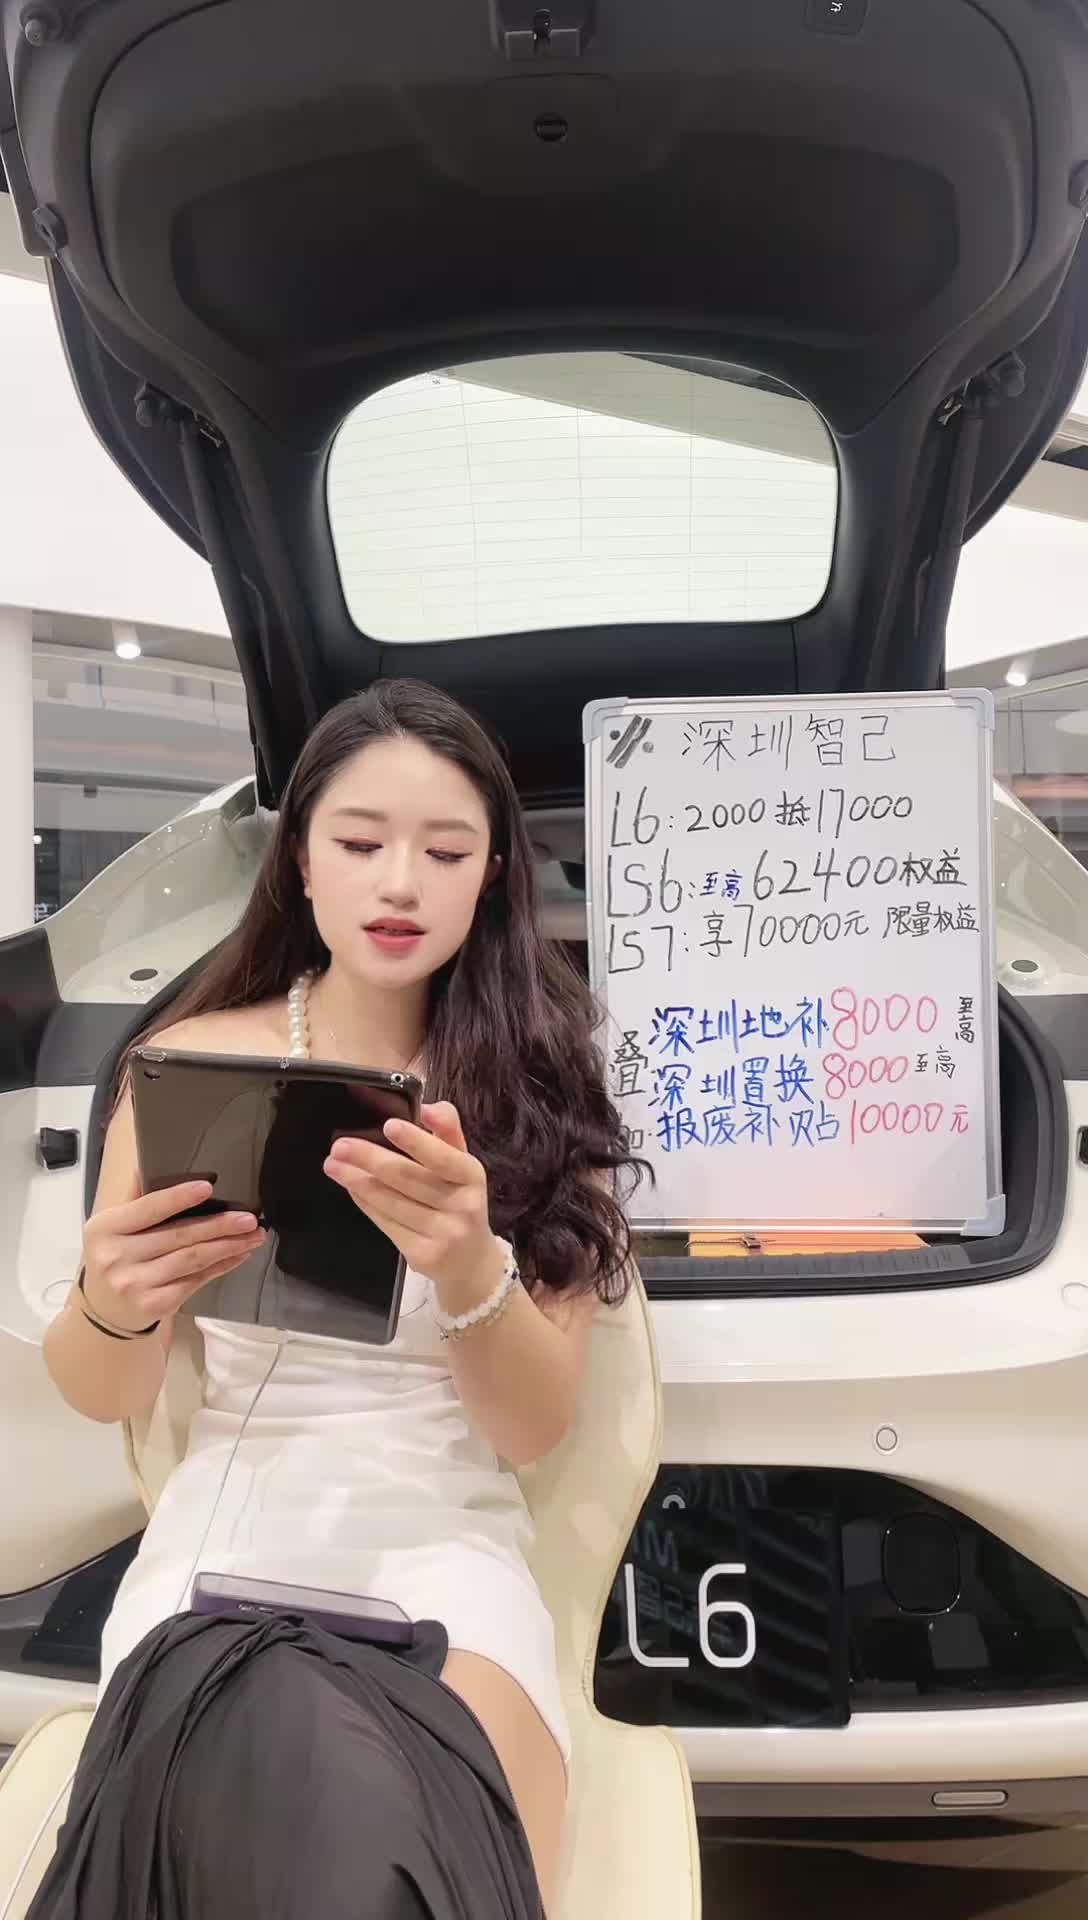 深圳智己
L6:2000抵17000
LS6:至高62400权益
LS7:享70000元 限量权益
叠加
深圳地补8000至高
深圳置换8000至高
报废补贴10000元
L6